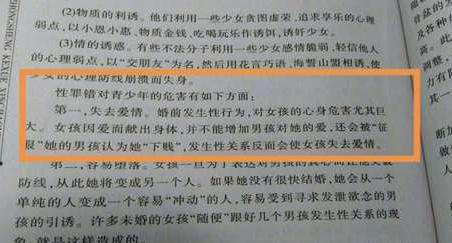 (2)物质的利诱。他们利用一些少女贪图虚荣、追求享乐的心理
弱点，以小恩小惠、物质金钱、吃喝玩乐作诱饵，诱奸少女。
(3)情的诱惑。有些不法分子利用一些少女感情脆弱、轻信他人
的心理弱点，以“交朋友”为名，然后用花言巧语、海誓山盟相诱，使
少女的心理防线崩溃而失身。
性罪错对青少年的危害有如下方面：
第一，失去爱情。婚前发生性行为，对女孩的心身危害尤其巨
大。女孩因爱而献出身体，并不能增加男孩对她的爱，还会被“征
服”她的男孩认为她“下贱”，发生性关系反而会使女孩失去爱情。
第二，容易堕落。女孩一旦为了表达对男孩的真心而让他突破
防线，从此她将变成另一个人。如果她没有很快结婚，她会从一个
单纯的人变成一个容易“冲动”的人，容易受到寻求发泄欲念的男
孩的引诱。许多未婚的女孩“随便”跟好几个男孩发生性关系的现
象，就是这样造成的。